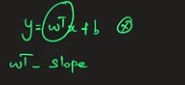 y = wTx + b ⊗
wT - slope